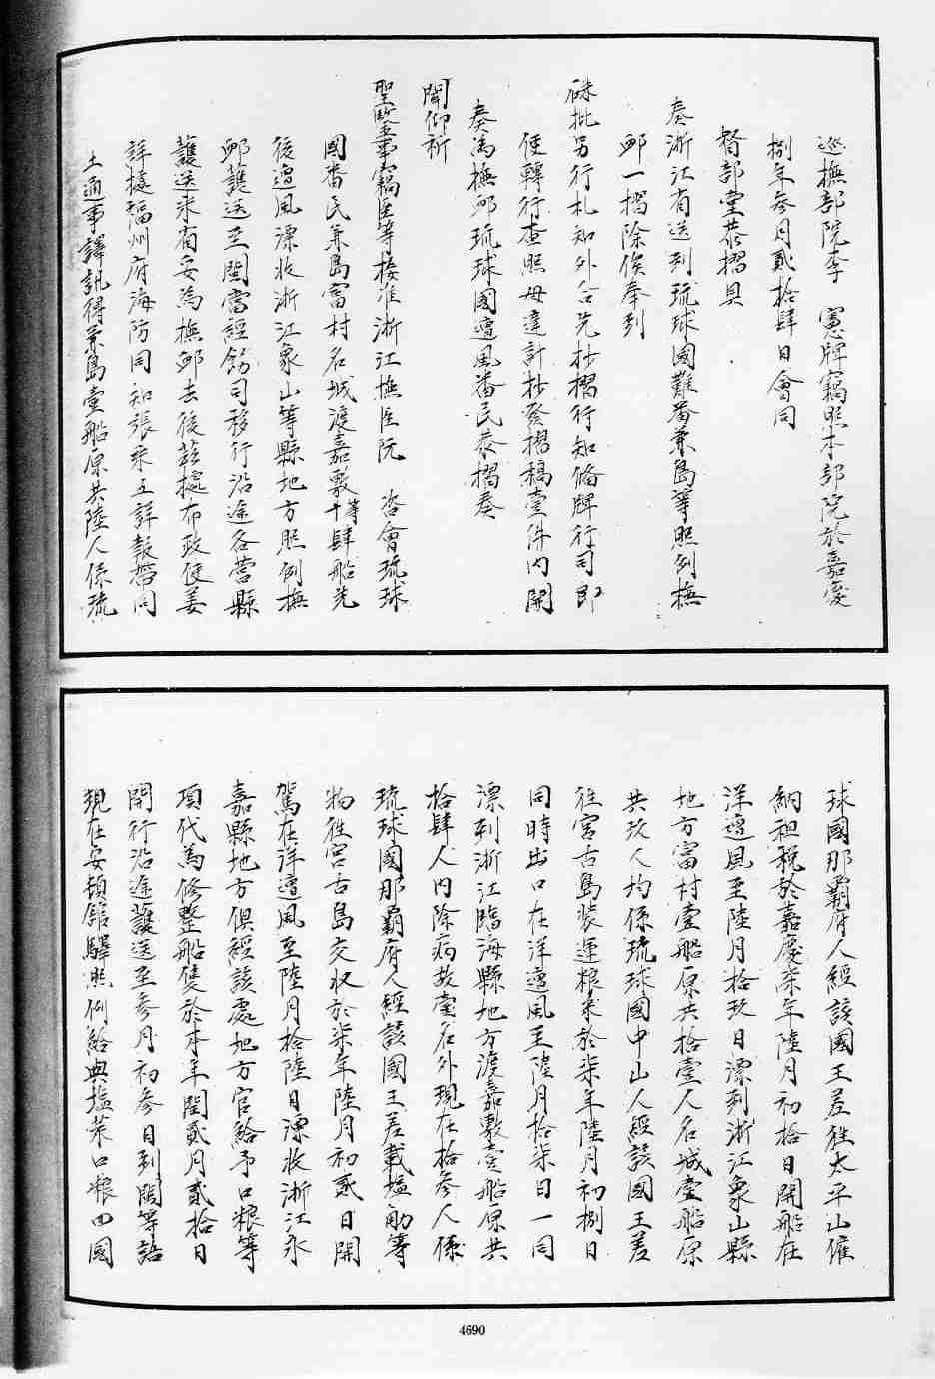 巡撫部院李　憲牌竊照本部院於嘉慶
捌年參月貳拾肆日會同
督部堂恭摺具
奏浙江省送到琉球國難番兼島等照例撫
卹一摺除俟奉到
硃批另行札知外合先抄摺行知條牌行司即
便轉行查照毋違計抄發摺稿壹件內開
奏為撫卹琉球國遭風番民恭摺奏
聞仰祈
聖鑒事竊臣等接准浙江撫臣阮　咨會琉球
國番民兼島富村名城渡嘉敷等肆船先
後遭風漂收浙江象山等縣地方照例撫
卹護送至閩當經飭司移行沿途各營縣
護送來省妥為撫卹去後茲據布政使姜
詳據福州府海防同知張采五詳報督同
土通事譯訊得兼島壹船原共陸人係琉
球國那霸府人經該國王差往太平山催
納租稅於嘉慶柒年陸月初拾日開船在
洋遭風至陸月拾玖日漂到浙江象山縣
地方富村壹船原共拾壹人名城壹船原
共玖人均係琉球國中山人經該國王差
往宮古島裝運粮米於柒年陸月初捌日
同時出口在洋遭風至陸月拾柒日一同
漂到浙江臨海縣地方渡嘉敷壹船原共
拾肆人內除病故壹名外現在拾參人係
琉球國那霸府人經該國王差載塩觔等
物往宮古島交收於柒年陸月初貳日開
駕在洋遭風至陸月拾陸日漂收浙江永
嘉縣地方俱經該處地方官給予口粮等
項代為修整船隻於本年閏貳月貳拾日
開行沿途護送至參月初參日到閩等語
現在安頓館驛照例給與塩菜口粮回國
4690